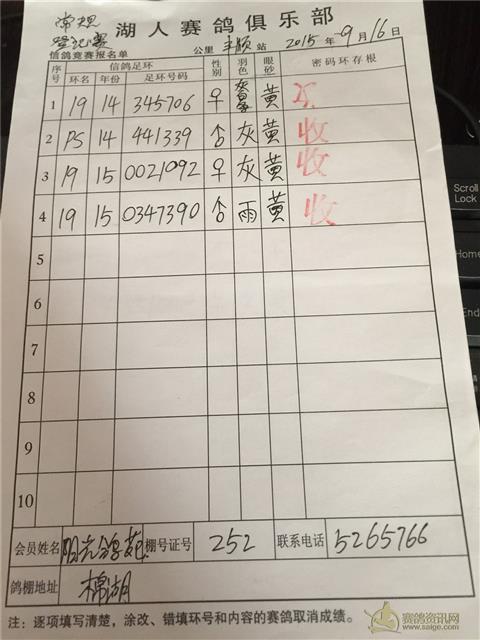 常规 湖人赛鸽俱乐部
登记赛
信鸽竞赛报名单 公里 丰顺 站 2015年9月16日
序号 信鸽足环 性别 羽色 眼砂 密码环存根
环名 年份 足环号码
1 19 14 345706 ♀ 黄
2 PS 14 441339 ♂ 灰 黄 收
3 19 15 0021092 ♀ 灰 黄 收
4 19 15 0347390 ♂ 雨 黄 收
5
6
7
8
9
10
会员姓名 阳光鸽苑 棚号证号 252 联系电话 5265766
鸽棚地址 棉湖
注：逐项填写清楚，涂改、错填环号和内容的赛鸽取消成绩。
赛鸽资讯网
www.saige.com